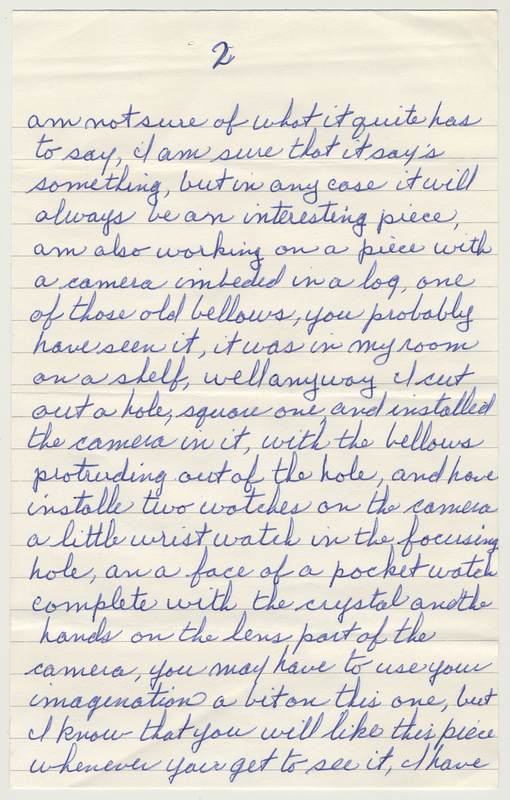 2
am not sure of what it quite has
to say, I am sure that it say's
something, but in any case it will
always be an interesting piece,
am also working on a piece with
a camera imbeded in a log, one
of those old bellows, you probably
have seen it, it was in my room
on a shelf, well anyway I cut
out a hole, square one, and installed
the camera in it, with the bellows
protruding out of the hole, and have
installe two watches on the camera
a little wrist watch in the focusing
hole, an a face of a pocket watch
complete with the crystal and the
hands on the lens part of the
camera, you may have to use your
imagination a bit on this one, but
I know that you will like this piece
whenever your get to see it, I have